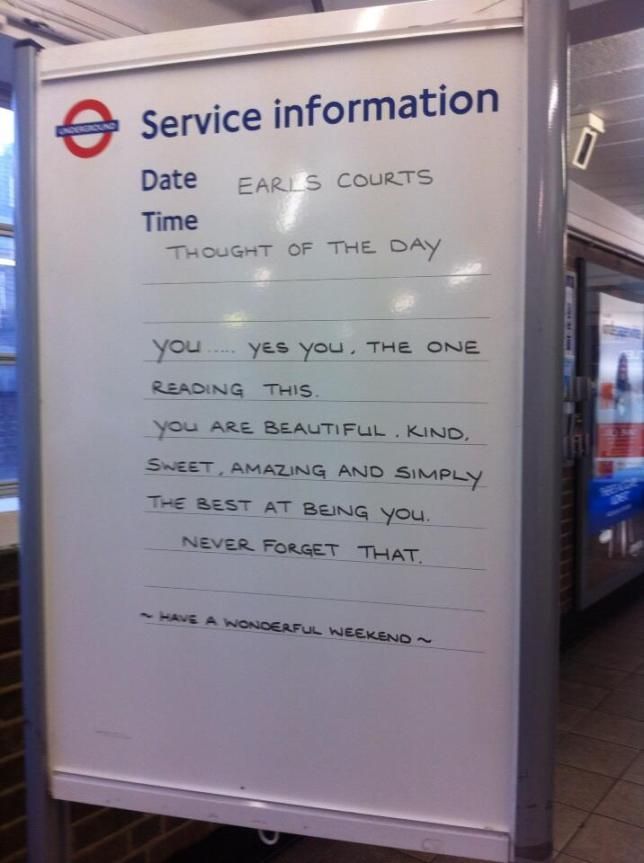 UNDERGROUND
Service information
Date EARLS COURTS
Time
THOUGHT OF THE DAY
YOU ..... YES YOU, THE ONE
READING THIS.
YOU ARE BEAUTIFUL, KIND,
SWEET, AMAZING AND SIMPLY
THE BEST AT BEING YOU.
NEVER FORGET THAT.
~ HAVE A WONDERFUL WEEKEND ~